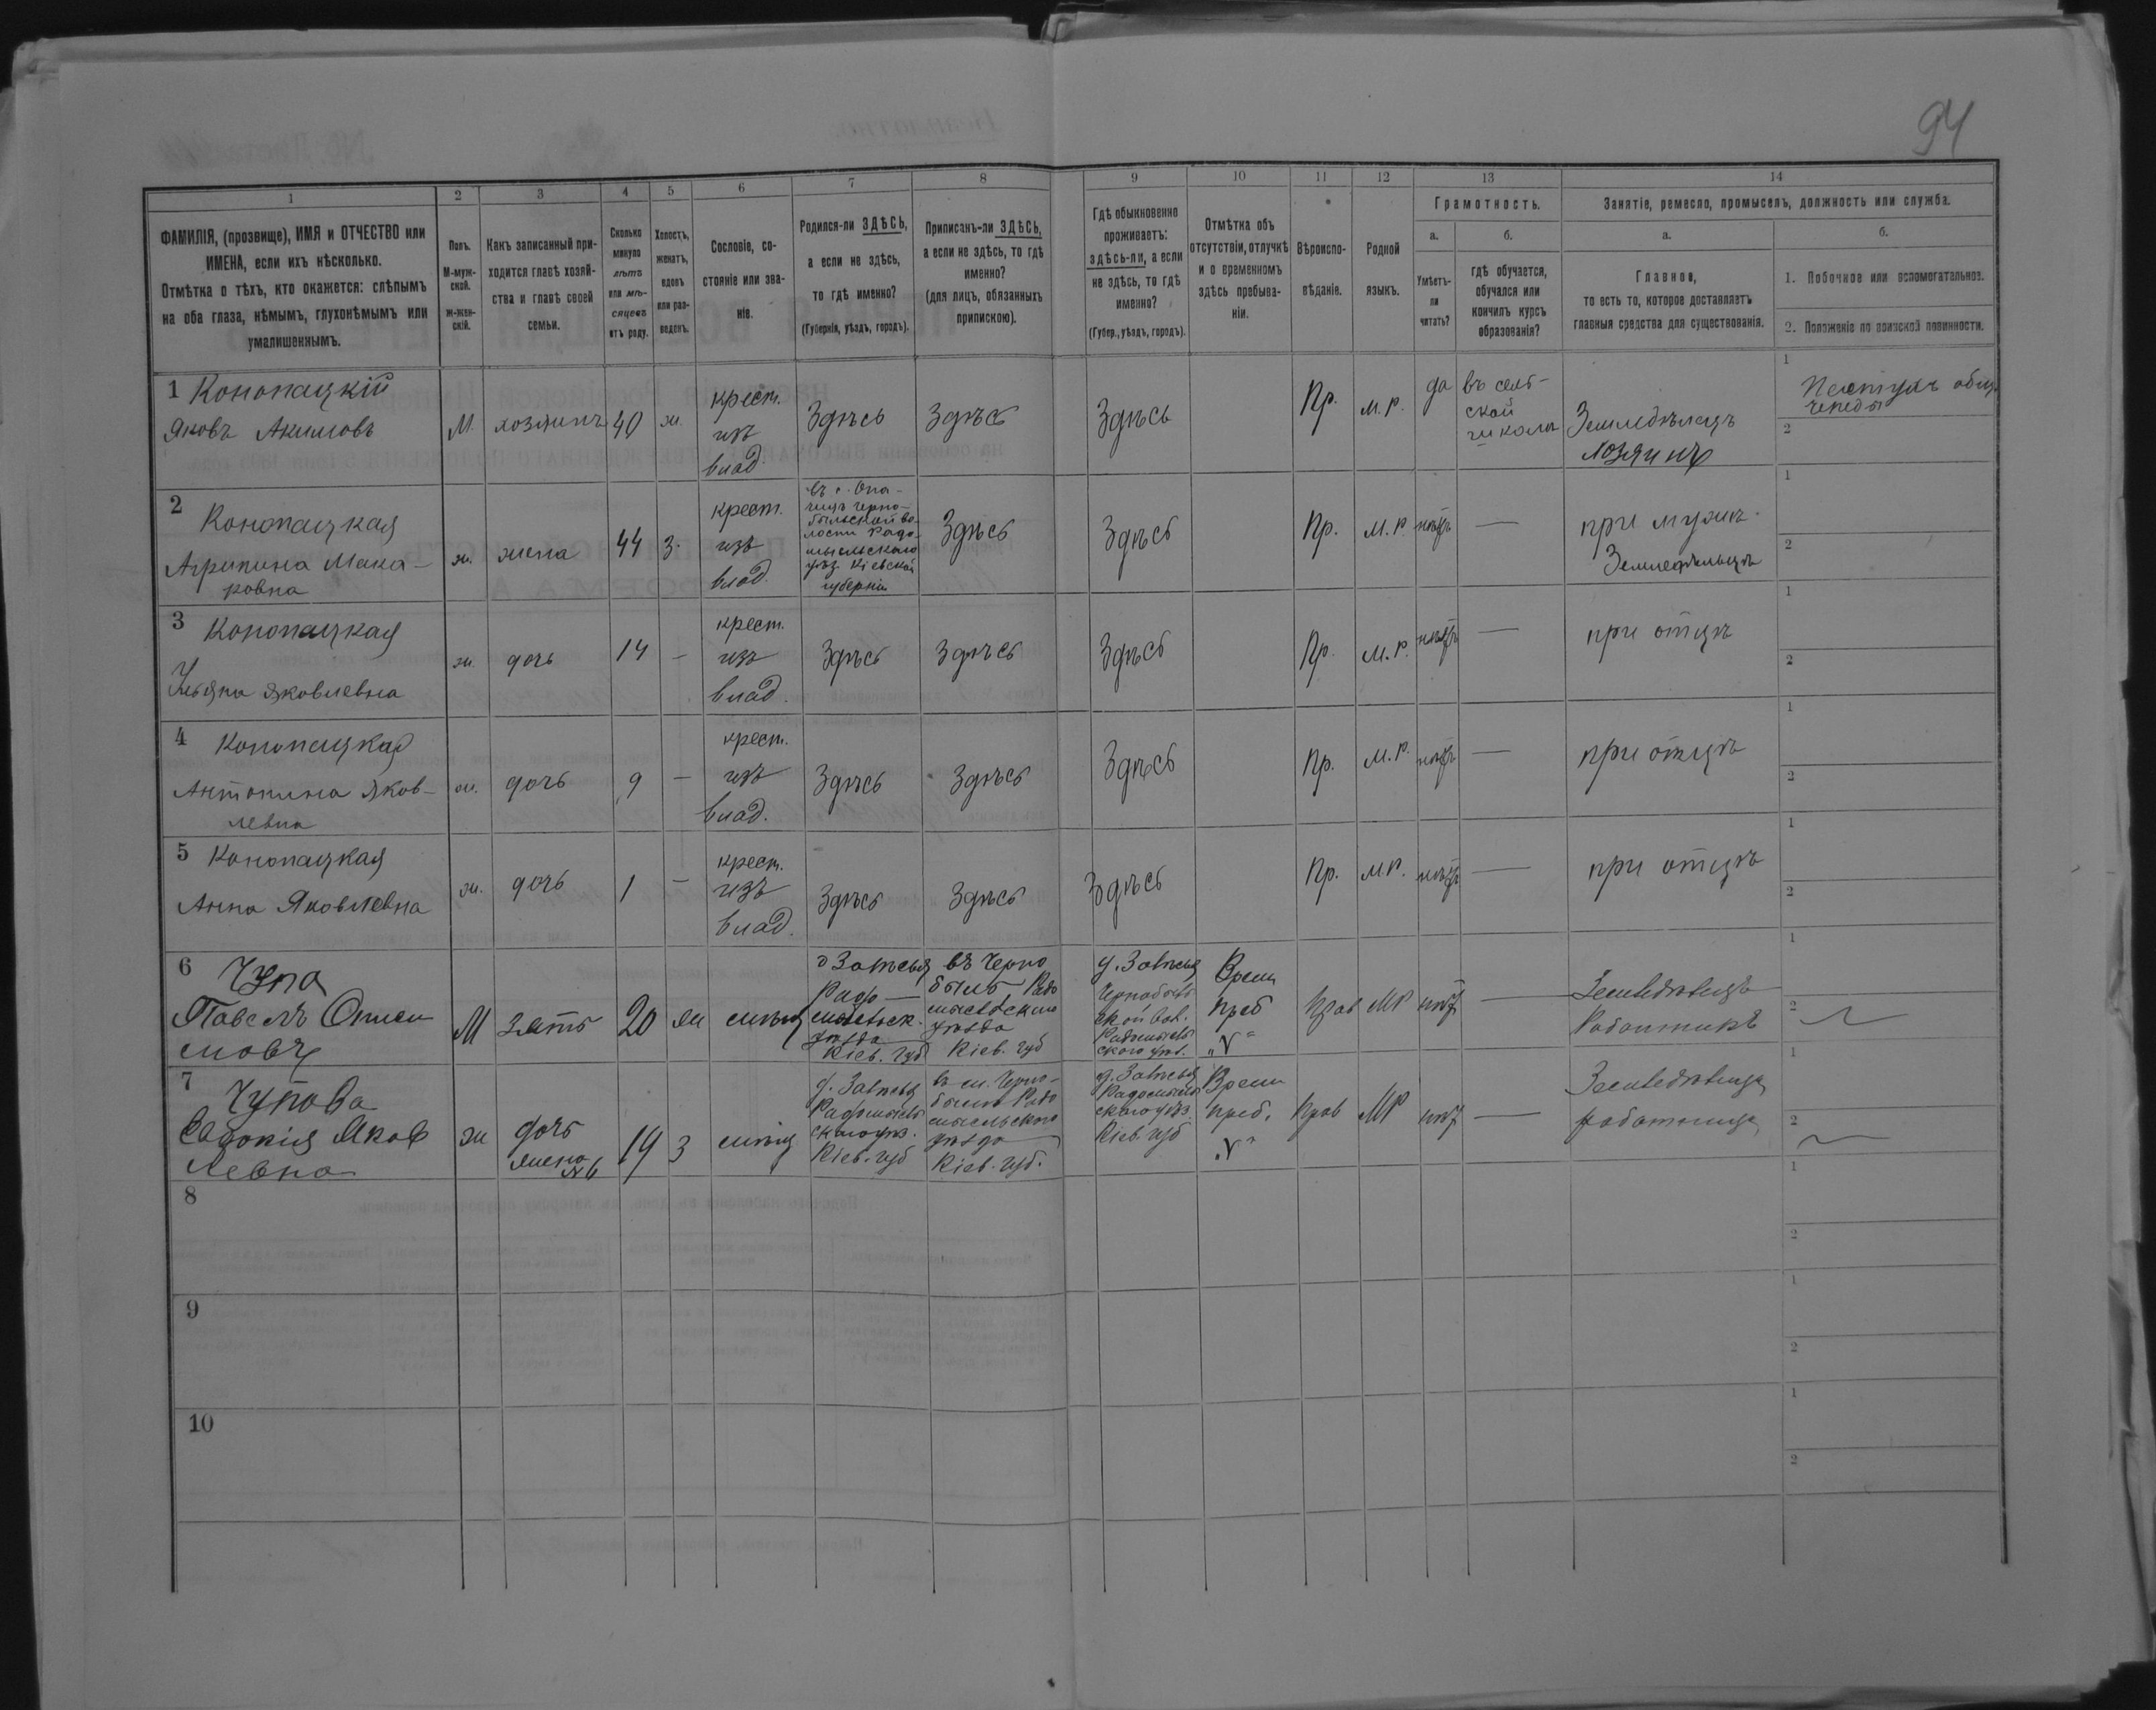 94
1
2
3
4
5
6
7
8
9
10
11
12
13
14
ФАМИЛІЯ, (прозвище), ИМЯ и ОТЧЕСТВО или
ИМЕНА, если ихъ нѣсколько.
Отмѣтка о тѣхъ, кто окажется: слѣпымъ
на оба глаза, нѣмымъ, глухонѣмымъ или
умалишеннымъ.
Полъ.
М-муж-
ской.
Ж-жен-
скій.
Какъ записанный при-
ходится главѣ хозяй-
ства и главѣ своей
семьи.
Сколько
минуло
лѣтъ
или мѣ-
сяцевъ
отъ роду.
Холостъ,
женатъ,
вдовъ
или раз-
веденъ.
Сословіе, со-
стояніе или зва-
ніе.
Родился-ли ЗДѢСЬ,
а если не здѣсь,
то гдѣ именно?
(Губернія, уѣздъ, городъ).
Приписанъ-ли ЗДѢСЬ,
а если не здѣсь, то гдѣ
именно?
(для лицъ, обязанныхъ
припискою).
Гдѣ обыкновенно
проживаетъ:
здѣсь-ли, а если
не здѣсь, то гдѣ
именно?
(Губер., уѣздъ, городъ).
Отмѣтка объ
отсутствіи, отлучкѣ
и о временномъ
здѣсь пребыва-
ніи.
Вѣроиспо-
вѣданіе.
Родной
языкъ.
Грамотность.
а.
Умѣетъ-
ли
читать?
б.
гдѣ обучается,
обучался или
кончилъ курсъ
образованія?
Занятіе, ремесло, промыселъ, должность или служба.
а.
Главное,
то есть то, которое доставляетъ
главныя средства для существованія.
б.
1. Побочное или вспомогательное.
2. Положеніе по воинской повинности.
1 Конопацкій
Яковъ Акимовъ
М.
хозяинъ
40
ж.
крест.
изъ
влад.
Здѣсь
Здѣсь
Здѣсь
Пр.
М. Р.
да
въ сель-
ской
школѣ
Земледѣлецъ
хозяинъ
1
Пастухъ общ.
череды
2
2
Конопацкая
Агрипина Мака-
ровна
ж.
жена
44
з.
крест.
изъ
влад.
въ с. Опа-
чицъ Черно-
быльской во-
лости Радо
мысльскаго
уѣз. Кіевской
губерніи
Здѣсь
Здѣсь
Пр.
М. Р.
нѣтъ
—
при мужѣ
Земледѣльцѣ
1
2
3
Конопацкая
Ульяна Яковлевна
ж.
дочь
14
–
крест.
изъ
влад.
Здѣсь
Здѣсь
Здѣсь
Пр.
М. Р.
нѣтъ
—
при отцѣ
1
2
4
Конопацкая
Антонина Яков-
левна
ж.
дочь
9
–
крест.
изъ
влад.
Здѣсь
Здѣсь
Здѣсь
Пр.
М. Р.
нѣтъ
—
при отцѣ
1
2
5
Конопацкая
Анна Яковлевна
ж.
дочь
1
–
крест.
изъ
влад.
Здѣсь
Здѣсь
Здѣсь
Пр.
М. Р.
нѣтъ
—
при отцѣ
1
2
6
Чупа
Павелъ Ониси
мовъ
М
зять
20
ж
Радо
мысльск.
уѣзда
Кіев. Губ
въ Черно
былѣ Радо
мысльскаго
уѣзда
Кіев. Губ
Чернобыль
ской вол.
Радомысль
скаго уѣз.
Врем
преб
„V“
Прав
МР
нѣт
—
Земледѣлецъ
Работникъ
1
2
7
Чупова
Евдокія Яков
левна
ж
дочь
жена
№ 6
19
з
Радомысль
скаго уѣз.
Кіев. губ
въ м. Черно-
былѣ Радо
мысльскаго
уѣзда
Кіев. губ.
Радомысль
скаго уѣз.
Кіев. губ
Врем
преб.
„V“
Прав
МР
нѣт
—
работница
1
2
8
1
2
9
1
2
10
1
2